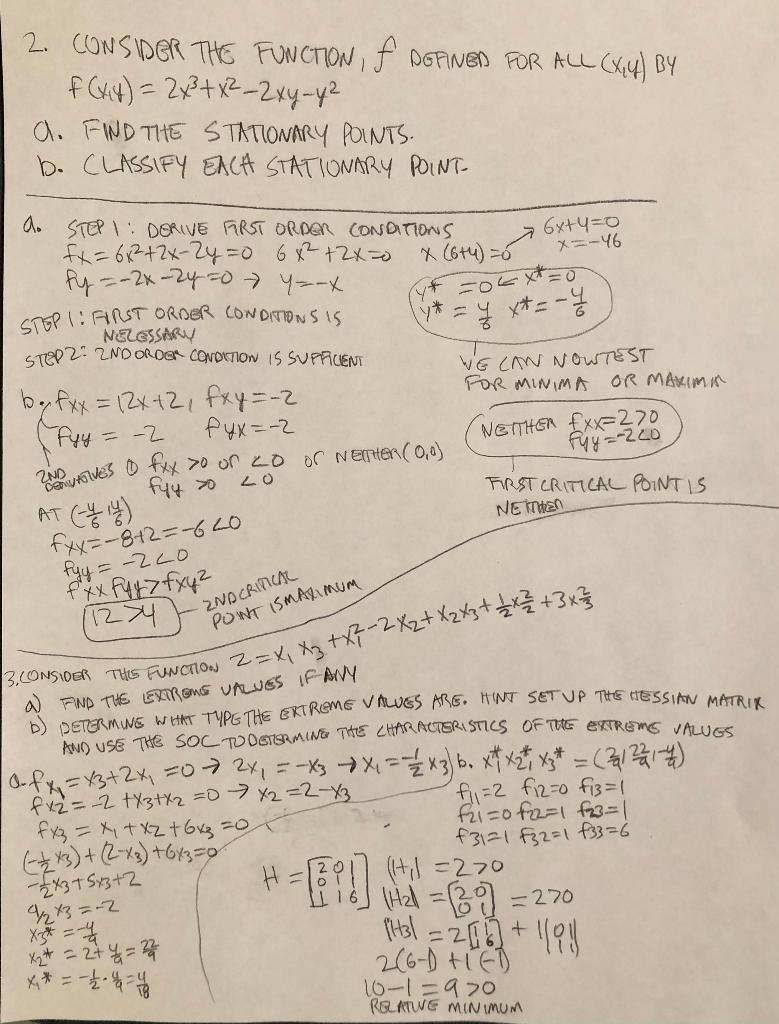 2. CONSIDER THE FUNCTION, f DEFINED FOR ALL (x,y) BY
f(x,y) = 2x³+x²-2xy-y²
a. FIND THE STATIONARY POINTS.
b. CLASSIFY EACH STATIONARY POINT.
a. STEP 1: DERIVE FIRST ORDER CONDITIONS
fx = 6x²+2x-2y=0 6x²+2x=0 x(6+4)=0
6x+4=0
x=-46
fy = -2x-2y=0 → y=-x
y* =0 ← x*=0
y* = 4/6 x* = -4/6
STEP 1: FIRST ORDER CONDITIONS IS
NECESSARY
STEP 2: 2ND ORDER CONDITION IS SUFFICIENT
WE CAN NOW TEST
FOR MINIMA OR MAXIMA
b. fxx = 12x+2, fxy=-2
fyy = -2 fyx=-2
NEITHER fxx=2>0
fyy=-2<0
2ND
DERIVATIVES ① fxx >0 or <0 or NEITHER (0,0)
fyy >0 <0
FIRST CRITICAL POINT IS
NEITHER
AT (-4/6, 4/6)
fxx=-8+2=-6<0
fyy = -2<0
fxx fyy > fxy²
12>4
2ND CRITICAL
POINT IS MAXIMUM
3. CONSIDER THE FUNCTION Z = x₁x₃ + x₁² - 2x₂ + x₂x₃ + ½x₂² + 3x₃²
a) FIND THE EXTREME VALUES IF ANY
b) DETERMINE WHAT TYPE THE EXTREME VALUES ARE. HINT SET UP THE HESSIAN MATRIX
AND USE THE SOC TO DETERMINE THE CHARACTERISTICS OF THE EXTREME VALUES
a. fx₁ = x₃+2x₁ =0 → 2x₁ = -x₃ → x₁ = -½x₃
fx2 = -2+x₃+x₂ =0 → x₂=2-x₃
fx₃ = x₁+x₂+6x₃=0
(-½x₃)+(2-x₃)+6x₃=0
-½x₃+5x₃+2
9/2 x₃ = -2
x₃* = -4/9
x₂* = 2+4/9 = 22/9
x₁* = -½·4/9=4/18
b. x₁* x₂*, x₃* = (2/9, 22/9, -4/9)
f11=2 f12=0 f13=1
f21=0 f22=1 f23=1
f31=1 f32=1 f33=6
H = [2 0 1
0 1 1
1 1 6]
|H₁| = 2>0
|H2| = [2 0
0 1] = 2>0
|H3| = 2[1 1
1 6] + 1|0 1
1 1|
2(6-1)+1(-1)
10-1=9>0
RELATIVE MINIMUM